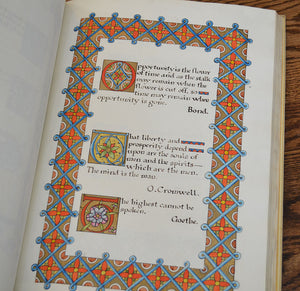 Opportunity is the flower
of time and as the stalk
may remain when the
flower is cut off, so
time may remain when
opportunity is gone.
Bond.
That liberty and
prosperity depend
upon are the souls of
men and the spirits—
which are the men.
The mind is the man.
O. Cromwell.
The highest cannot be
spoken.
Goethe.